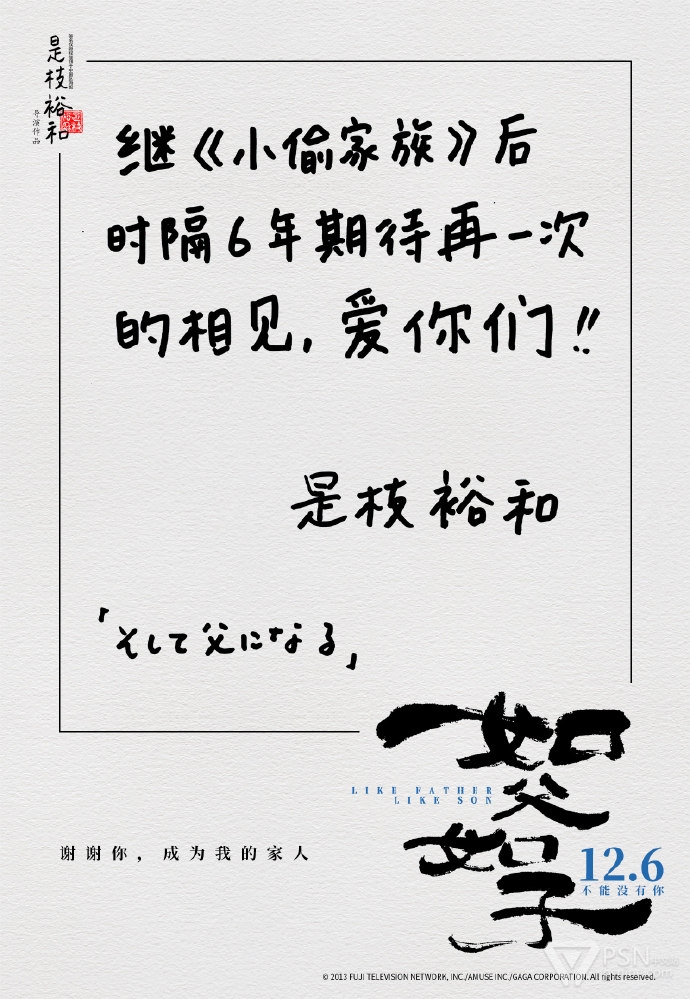 是枝裕和
导演作品
继《小偷家族》后
时隔6年期待再一次
的相见，爱你们!!
是枝裕和
「そして父になる」
如父如子
LIKE FATHER
LIKE SON
谢谢你，成为我的家人
12.6
不能没有你
© 2013 FUJI TELEVISION NETWORK, INC./AMUSE INC./GAGA CORPORATION. All rights reserved.
PSN